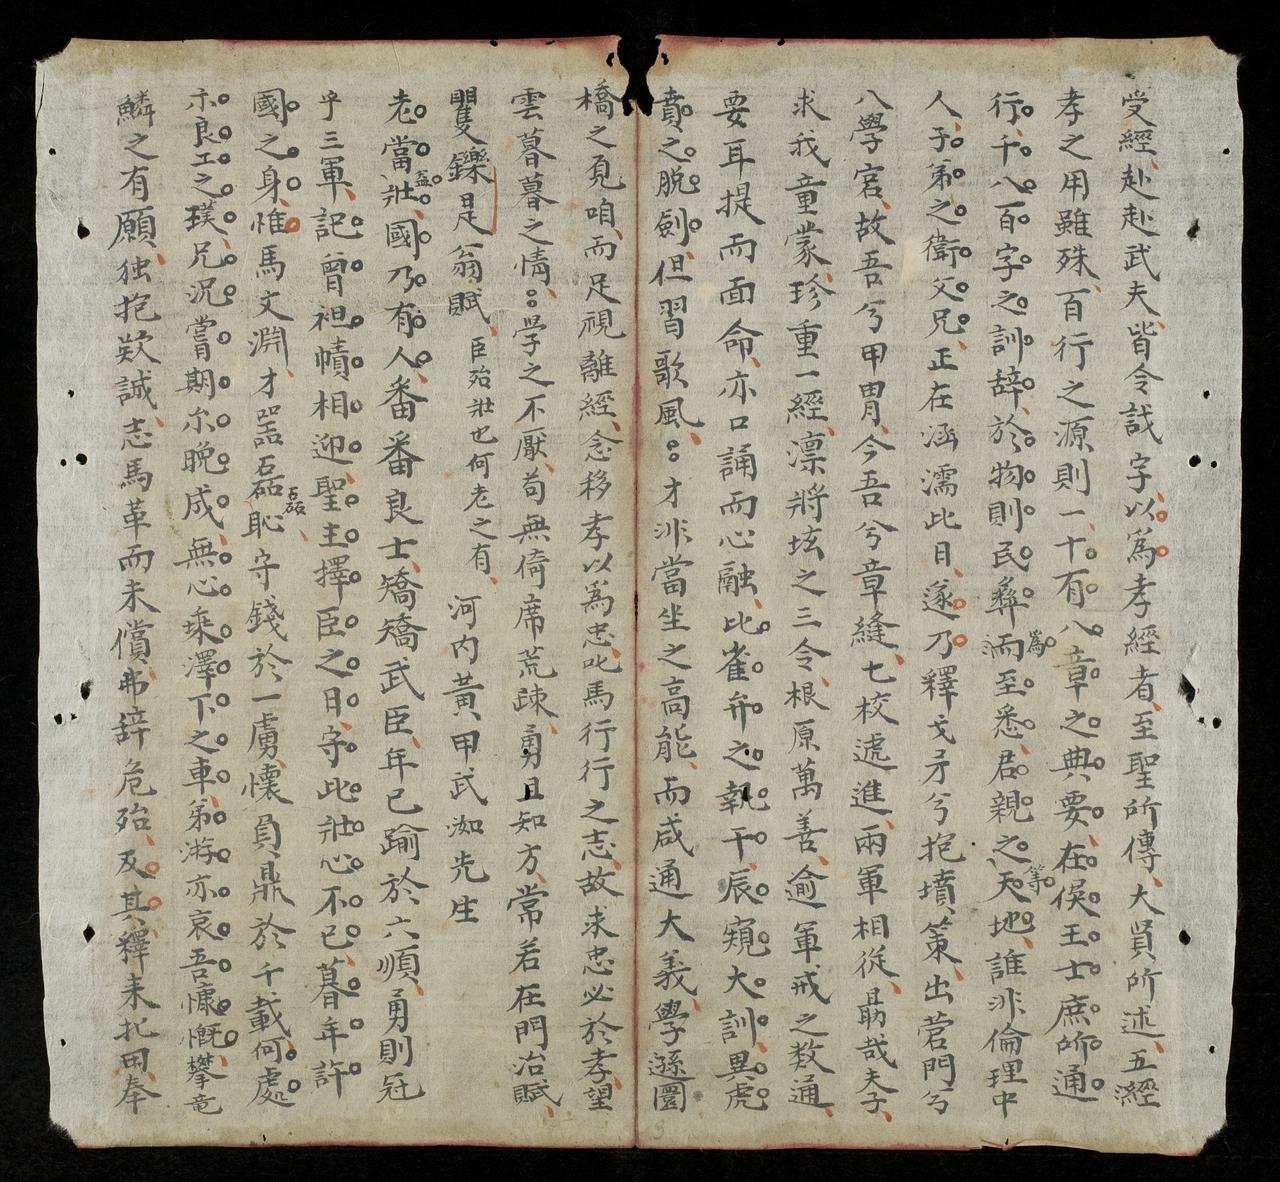 受經赴赴武夫皆令誡字以爲孝經者至聖所傳大賢所述五經
孝之用雖殊百行之源則一十有八章之典要在侯王士庶所通
行千八百字之訓辞於物則民彝爲而至悉君親之等天地誰非倫理中
人子弟之衛父兄正在涵濡此日遂乃釋戈矛兮抱墳策出營門兮
八學宮故吾兮甲冑今吾兮章縫七校遞進兩軍相從勗哉夫子
求我童蒙珍重一經凛將垓之三令根原萬善逾軍戒之数通
要耳提而面命亦口誦而心融比雀弁之執干辰窺大訓異虎
賁之脫劍但習歌風：才非當坐之高能而咸通大義學遜圜
橋之見咱而足視離經念移孝以爲忠叱馬行行之志故求忠必於孝望
雲暮暮之情：學之不厭苟無倚席荒疎勇且知方常若在門冶賦
矍鑠是翁賦 臣殆壯也何老之有 河内黃甲武洳先生
老當益壯國乃有人番番良士矯矯武臣年已踰於六順勇則冠
乎三軍記曾袒幘相迎聖主擇臣之日守此壯心不已暮年許
國之身惟馬文淵才器磊磊恥守錢於一虜懷負鼎於千載何處
示良工之璞兄況嘗期尔晚成無心乘澤下之車弟游亦哀吾慷慨攀竜
鱗之有願独抱欵誠志馬革而未償弗辞危殆及其釋耒扎田奉